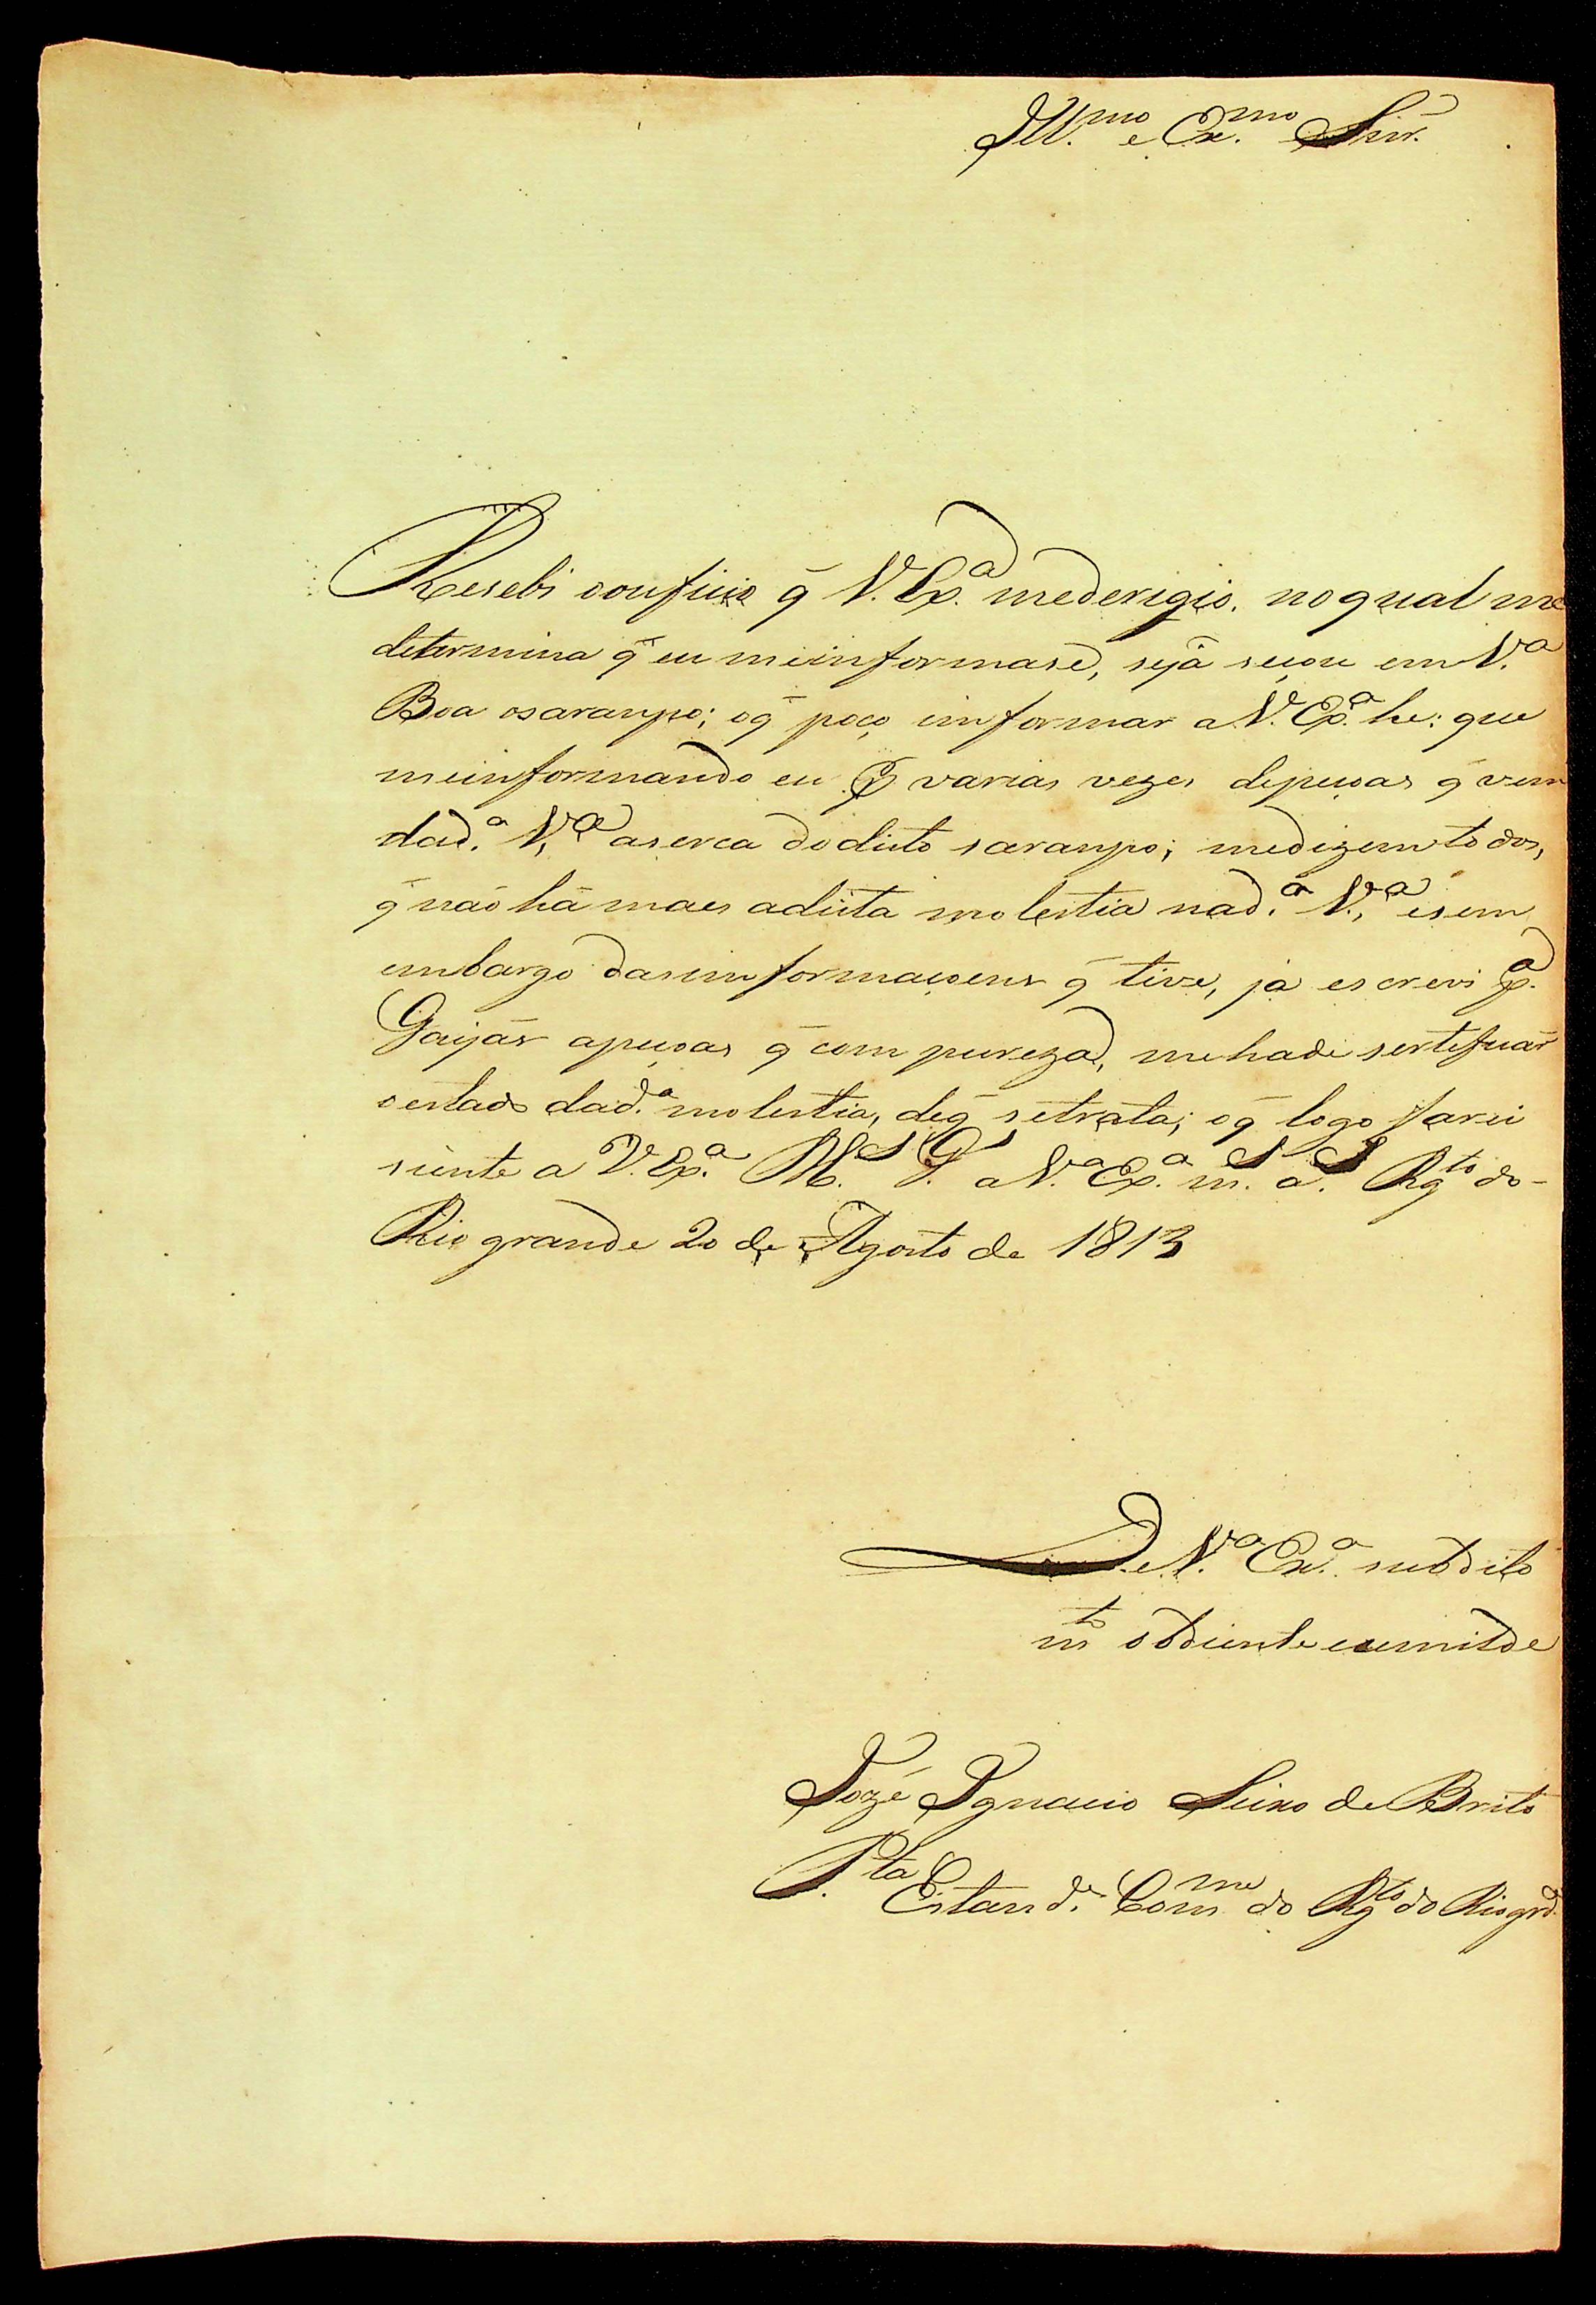 Ill.mo e Ex.mo Snr.
Resebi oouficio q̃ V. Ex.a mederigio. noqual me
determina q̃ eu meinformase, sejá seçou em V.a
Boa osarampo; oq̃ poço imformar a V. Ex.a he: que
meinformando eu p varias vezes depeçoas q̃ vem
dad.a V.a aserca do dicto sarampo; medizem todos,
q̃ não há maes adicta molestia nad.a V.a esem
embargo dasimformaçoens q̃ tive, já escrevi p.a
Goijás apeçoas q̃ com pureza, mehade serteficar
oestado dad.a molestia, deq̃ setrata; oq̃ logo farei
siente a V. Ex.a D.s G.e a V.a Ex.a m.s a.s Rg.to do-
Rio grande 20 de Agosto de 1813
De V.a Ex.a subdito
m.to obdiente eumilde
Jozé Ignacio Seixo de Brito
P.ta Estand.e Com.me do Rg.to do Rio grd.e